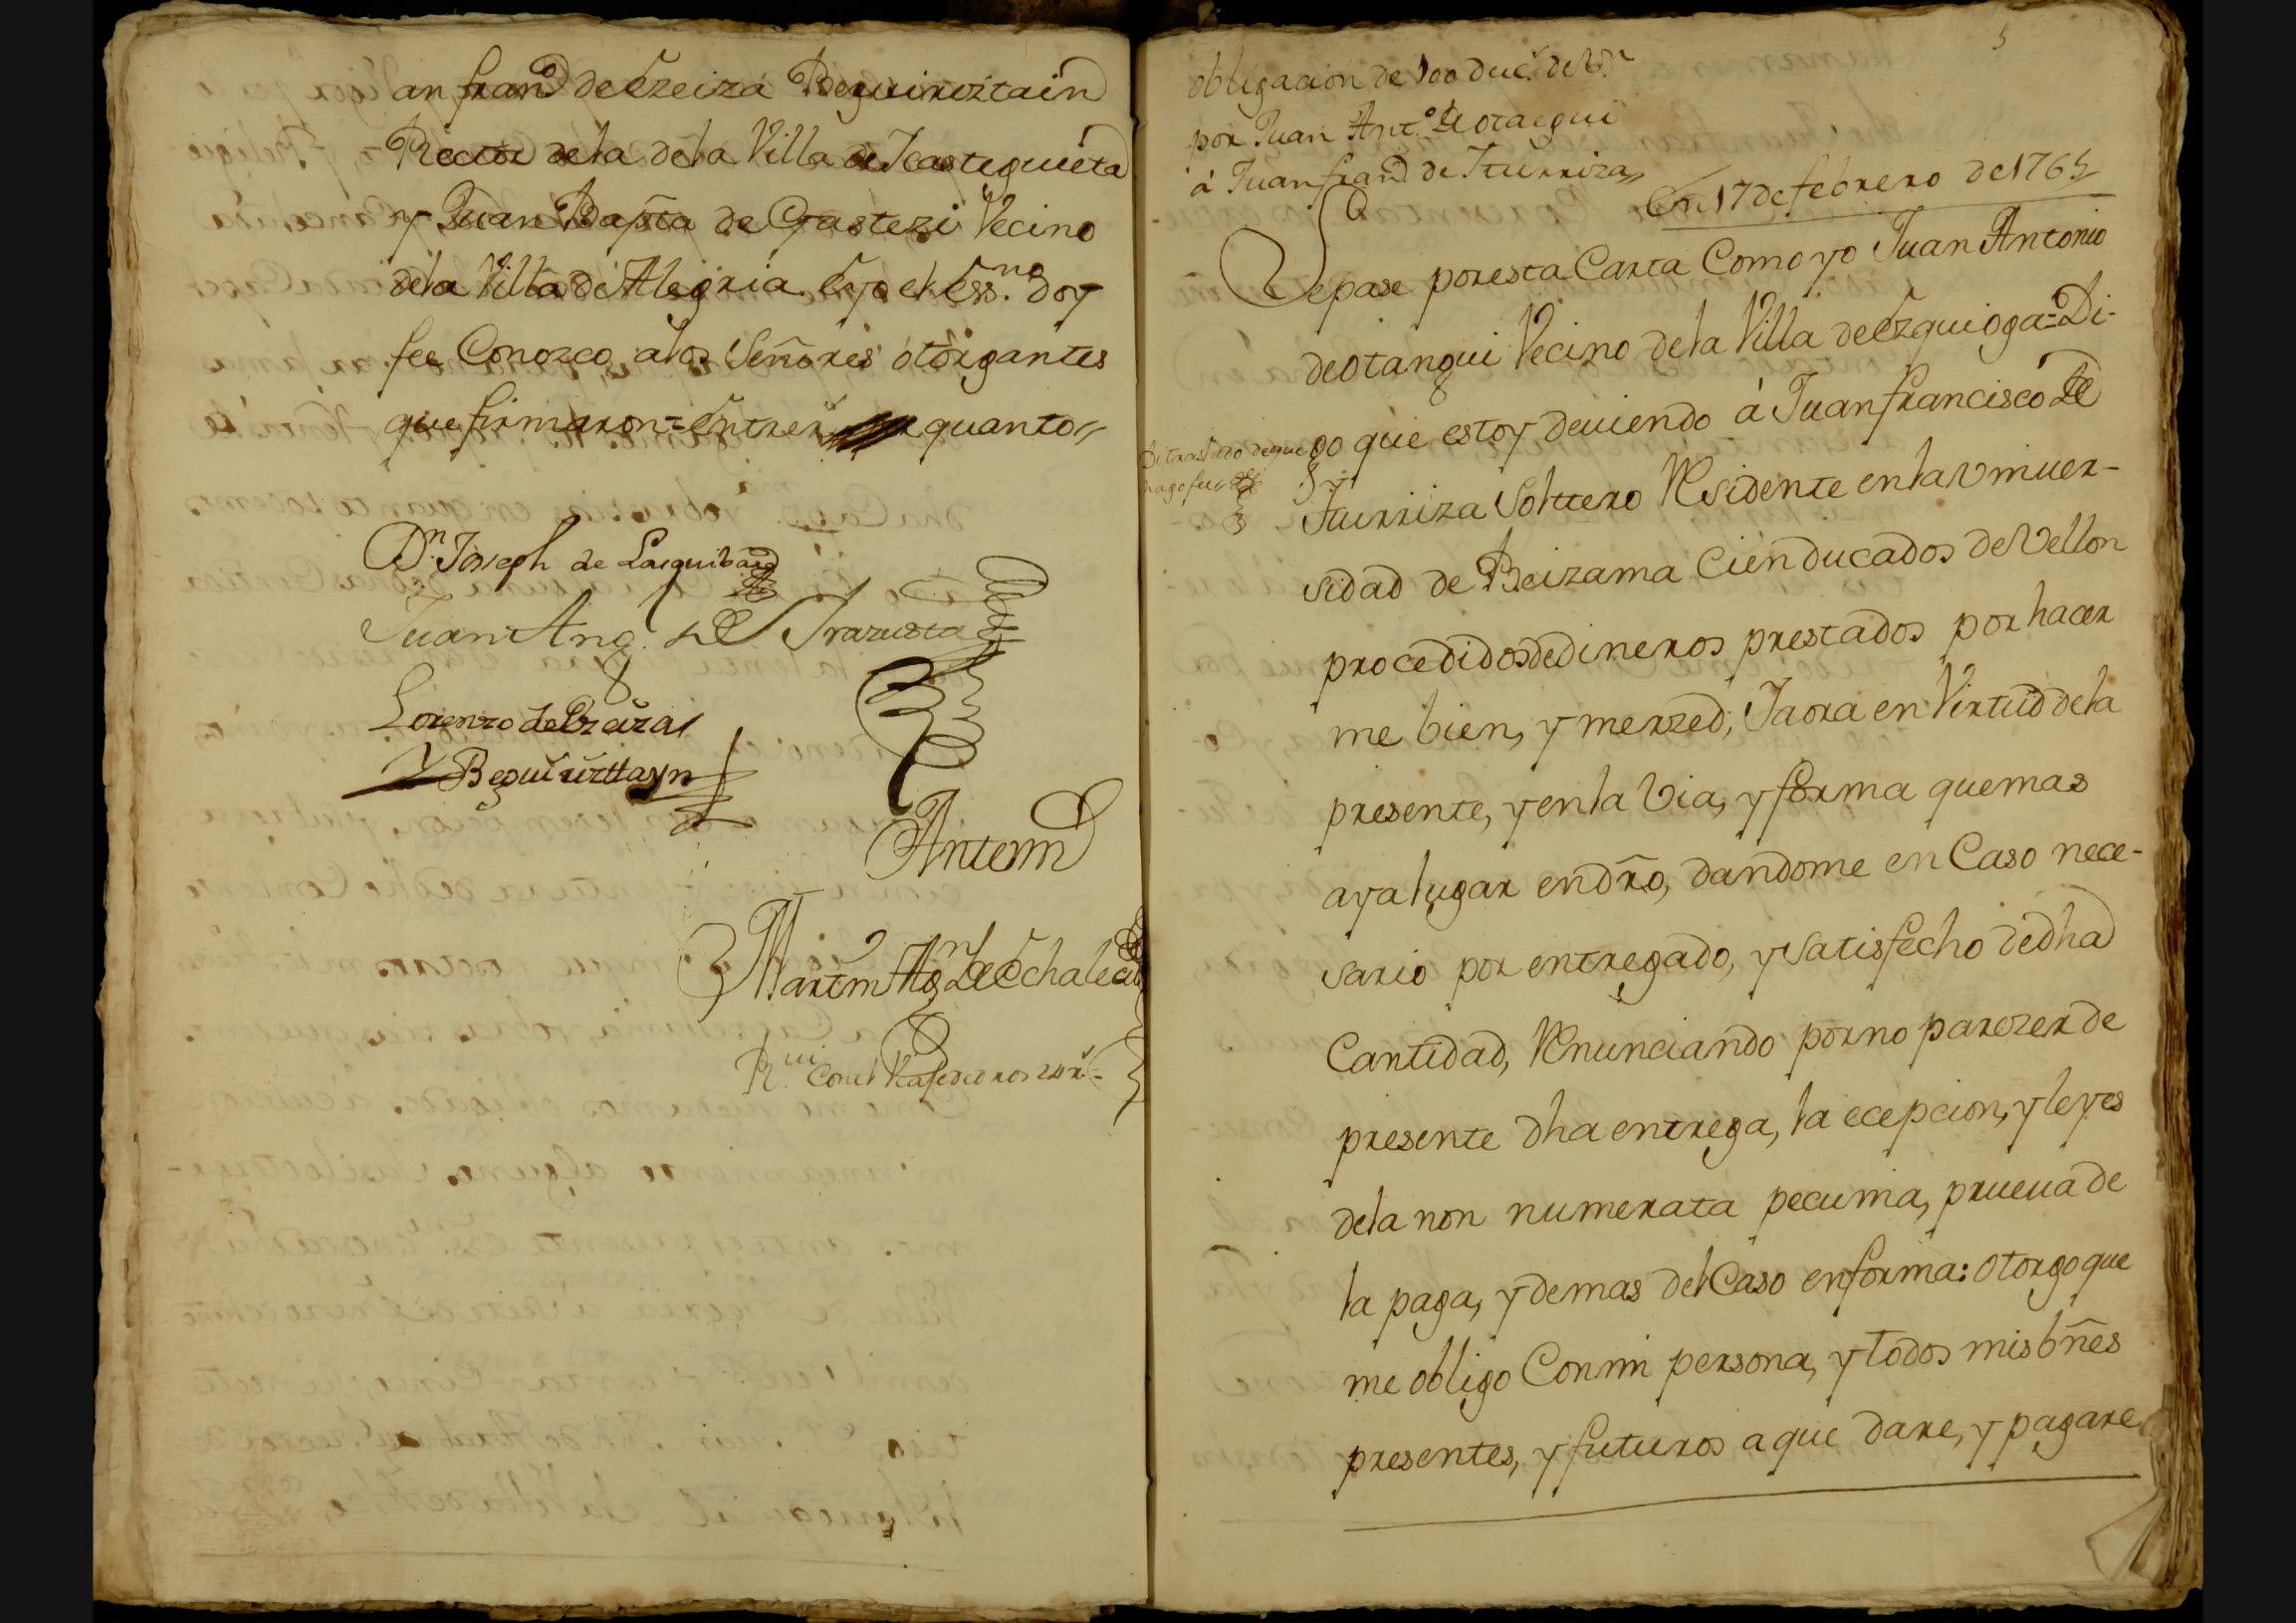 an fran.co de Ezeiza Beguiriztain
Rector de la de la Villa de Icazteguieta
y Juan Bapta de Gastezi Vecino
dela Villa de Alegria. Eyo el Essno doy
fee Conozco alos Señores otorgantes
que firmaron = Entrer quanto
Dn Joseph de
Juan Ang. de Irazusta
Lorenzo de Ezeiza
Y Beguiriztayn
Antemi
Martin Agn de Echale
5
obligacion de 100 ducs de Vn
por Juan Anto de otaegui
á Juan franco de Iturriza
En 17 de febrero de 1765
Sepase por esta Carta Como yo Juan Antonio
de otangui Vecino de la Villa de Ezquioga = Di-
go que estoy deuiendo á Juan francisco de
Di traslado de que
hago fee
Iturriza Soltero Residente en la vniuer-
sidad de Beizama Cien ducados de Vellon
procedidos de dineros prestados por hacer
me bien, y merzed; Iaora en Virtud dela
presente, y en la Via, y forma que mas
aya lugar en dro, dandome en Caso nece-
sario por entregado, y satisfecho de dha
Cantidad, Renunciando por no parezer de
presente dha entrega, la ecepcion, y leyes
dela non numerata pecunia, prueua de
la paga, y demas del Caso en forma: otorgo que
me obligo Con mi persona, y todos mis bñes
presentes, y futuros a que dare, y pagare